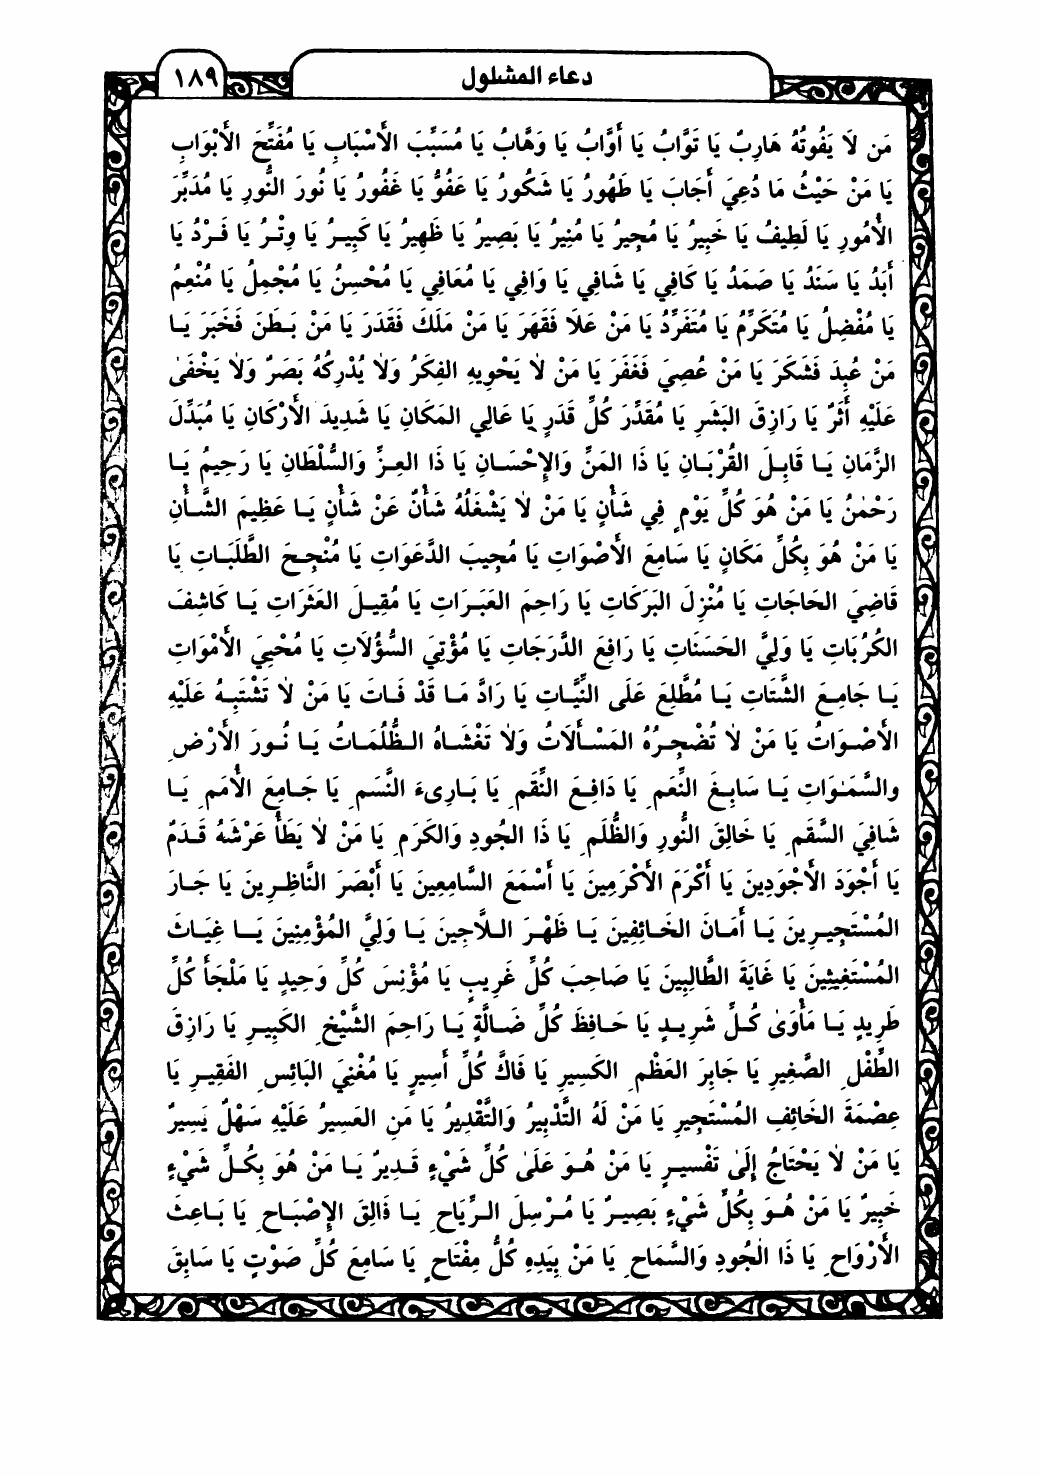 دعاء المشلول
١٨٩
مَن لَا يَفُوتُهُ هَارِبٌ يَا تَوَّابُ يَا أَوَّابُ يَا وَهَّابُ يَا مُسَبِّبَ الأَسْبَابِ يَا مُفَتِّحَ الأَبْوَابِ
يَا مَنْ حَيْثُ مَا دُعِيَ أَجَابَ يَا طَهُورُ يَا شَكُورُ يَا عَفُوُّ يَا غَفُورُ يَا نُورَ النُّورِ يَا مُدَبِّرَ
الأُمُورِ يَا لَطِيفُ يَا خَبِيرُ يَا مُجِيرُ يَا مُنِيرُ يَا بَصِيرُ يَا ظَهِيرُ يَا كَبِيرُ يَا وِتْرُ يَا فَرْدُ يَا
أَبَدُ يَا سَنَدُ يَا صَمَدُ يَا كَافِي يَا شَافِي يَا وَافِي يَا مُعَافِي يَا مُحْسِنُ يَا مُجْمِلُ يَا مُنْعِمُ
يَا مُفْضِلُ يَا مُتَكَرِّمُ يَا مُتَفَرِّدُ يَا مَنْ عَلَا فَقَهَرَ يَا مَنْ مَلَكَ فَقَدَرَ يَا مَنْ بَطَنَ فَخَبَرَ يَا
مَنْ عُبِدَ فَشَكَرَ يَا مَنْ عُصِيَ فَغَفَرَ يَا مَنْ لَا يَحْوِيهِ الفِكَرُ وَلَا يُدْرِكُهُ بَصَرٌ وَلَا يَخْفَىٰ
عَلَيْهِ أَثَرٌ يَا رَازِقَ البَشَرِ يَا مُقَدِّرَ كُلِّ قَدَرٍ يَا عَالِي المَكَانِ يَا شَدِيدَ الأَرْكَانِ يَا مُبَدِّلَ
الزَّمَانِ يَا قَابِلَ القُرْبَانِ يَا ذَا المَنِّ وَالإِحْسَانِ يَا ذَا العِزِّ وَالسُّلْطَانِ يَا رَحِيمُ يَا
رَحْمٰنُ يَا مَنْ هُوَ كُلَّ يَوْمٍ فِي شَأْنٍ يَا مَنْ لَا يَشْغَلُهُ شَأْنٌ عَنْ شَأْنٍ يَا عَظِيمَ الشَّأْنِ
يَا مَنْ هُوَ بِكُلِّ مَكَانٍ يَا سَامِعَ الأَصْوَاتِ يَا مُجِيبَ الدَّعَوَاتِ يَا مُنْجِحَ الطَّلَبَاتِ يَا
قَاضِيَ الحَاجَاتِ يَا مُنْزِلَ البَرَكَاتِ يَا رَاحِمَ العَبَرَاتِ يَا مُقِيلَ العَثَرَاتِ يَا كَاشِفَ
الكُرُبَاتِ يَا وَلِيَّ الحَسَنَاتِ يَا رَافِعَ الدَّرَجَاتِ يَا مُؤْتِيَ السُّؤُلَاتِ يَا مُحْيِيَ الأَمْوَاتِ
يَا جَامِعَ الشَّتَاتِ يَا مُطَّلِعَ عَلَى النِّيَّاتِ يَا رَادَّ مَا قَدْ فَاتَ يَا مَنْ لَا تَشْتَبِهُ عَلَيْهِ
الأَصْوَاتُ يَا مَنْ لَا تُضْجِرُهُ المَسْأَلَاتُ وَلَا تَغْشَاهُ الظُّلُمَاتُ يَا نُورَ الأَرْضِ
والسَّمٰوَاتِ يَا سَابِغَ النِّعَمِ يَا دَافِعَ النِّقَمِ يَا بَارِىءَ النَّسَمِ يَا جَامِعَ الأُمَمِ يَا
شَافِيَ السَّقَمِ يَا خَالِقَ النُّورِ وَالظُّلَمِ يَا ذَا الجُودِ وَالكَرَمِ يَا مَنْ لَا يَطَأُ عَرْشَهُ قَدَمٌ
يَا أَجْوَدَ الأَجْوَدِينَ يَا أَكْرَمَ الأَكْرَمِينَ يَا أَسْمَعَ السَّامِعِينَ يَا أَبْصَرَ النَّاظِرِينَ يَا جَارَ
المُسْتَجِيرِينَ يَا أَمَانَ الخَائِفِينَ يَا ظَهْرَ اللَّاجِينَ يَا وَلِيَّ المُؤْمِنِينَ يَا غِيَاثَ
المُسْتَغِيثِينَ يَا غَايَةَ الطَّالِبِينَ يَا صَاحِبَ كُلِّ غَرِيبٍ يَا مُؤْنِسَ كُلِّ وَحِيدٍ يَا مَلْجَأَ كُلِّ
طَرِيدٍ يَا مَأْوَىٰ كُلِّ شَرِيدٍ يَا حَافِظَ كُلِّ ضَالَّةٍ يَا رَاحِمَ الشَّيْخِ الكَبِيرِ يَا رَازِقَ
الطِّفْلِ الصَّغِيرِ يَا جَابِرَ العَظْمِ الكَسِيرِ يَا فَاكَّ كُلِّ أَسِيرٍ يَا مُغْنِيَ البَائِسِ الفَقِيرِ يَا
عِصْمَةَ الخَائِفِ المُسْتَجِيرِ يَا مَنْ لَهُ التَّدْبِيرُ وَالتَّقْدِيرُ يَا مَنِ العَسِيرُ عَلَيْهِ سَهْلٌ يَسِيرٌ
يَا مَنْ لَا يَحْتَاجُ إِلَىٰ تَفْسِيرٍ يَا مَنْ هُوَ عَلَىٰ كُلِّ شَيْءٍ قَدِيرٌ يَا مَنْ هُوَ بِكُلِّ شَيْءٍ
خَبِيرٌ يَا مَنْ هُوَ بِكُلِّ شَيْءٍ بَصِيرٌ يَا مُرْسِلَ الرِّيَاحِ يَا فَالِقَ الإِصْبَاحِ يَا بَاعِثَ
الأَرْوَاحِ يَا ذَا الجُودِ وَالسَّمَاحِ يَا مَنْ بِيَدِهِ كُلُّ مِفْتَاحٍ يَا سَامِعَ كُلِّ صَوْتٍ يَا سَابِقَ